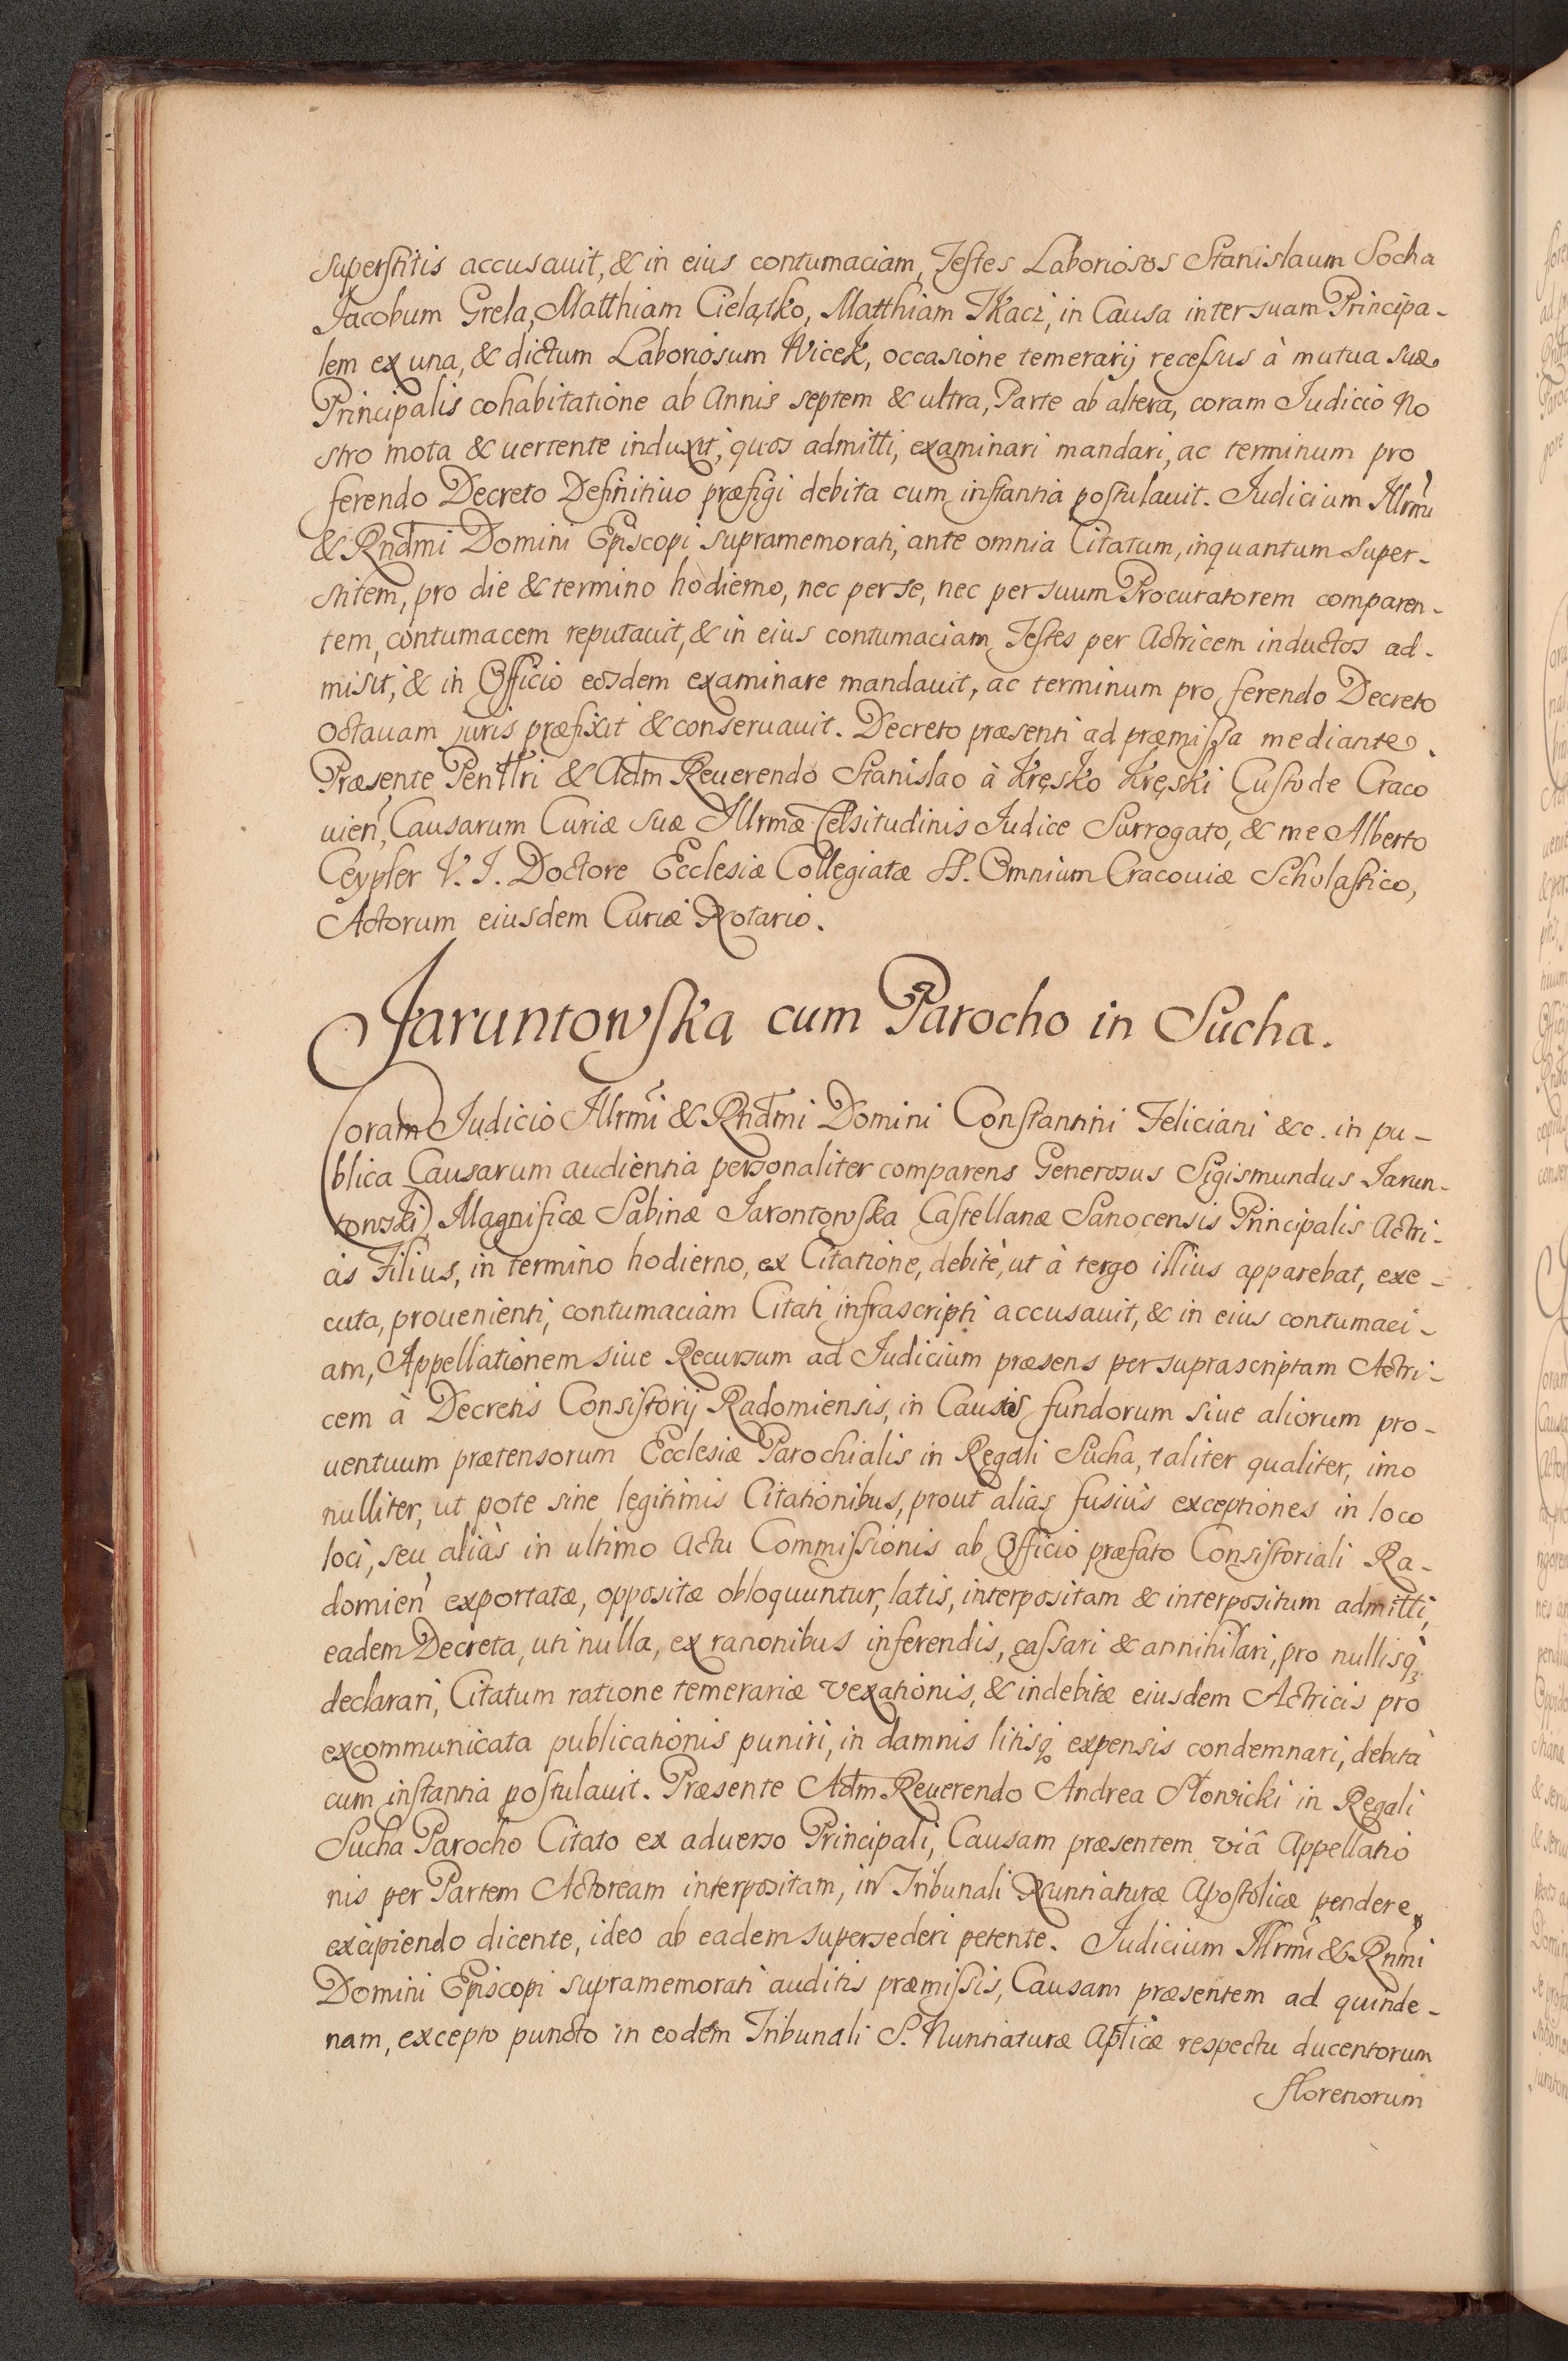 superstitis accusauit, & in eius contumaciam, Testes Laboriosos Stanislaum Socha
Jacobum Grela, Matthiam Cielątko, Matthiam Tkacz, in Causa inter suam Principa-
lem ex una, & dictum Laboriosum Wicek, occasione temerarij recessus à mutua suæ
Principalis cohabitatione ab Annis septem & ultra, Parte ab altera, coram Iudicio No
stro mota & uertente induxit, quos admitti, examinari mandari, ac terminum pro
ferendo Decreto Definitiuo præfigi debita cum instantia postulauit. Iudicium Illrmi
& Rndmi Domini Episcopi supramemorati, ante omnia Citatum, inquantum super-
stitem, pro die & termino hodierno, nec per se, nec per suum Procuratorem comparen-
tem, contumacem reputauit, & in eius contumaciam, Testes per Actricem inductos ad-
misit, & in Officio eosdem examinare mandauit, ac terminum pro ferendo Decreto
octauam juris præfixit & conseruauit. Decreto præsenti ad præmissa mediante.
Præsente Penttri & Adm Reuerendo Stanislao à Kręsko Kręski Custode Craco
uien, Causarum Curiæ suæ Illrmæ Celsitudinis Iudice Surrogato, & me Alberto
Ceypler V. I. Doctore Ecclesiæ Collegiatæ SS. Omnium Cracouiæ Scholastico,
Actorum eiusdem Curiæ Notario.
Jaruntowska cum Parocho in Sucha.
Coram Iudicio Illrmi & Rndmi Domini Constantini Feliciani &c. in pu-
blica Causarum audientia personaliter comparens Generosus Sigismundus Jarun-
towski, Magnificæ Sabinæ Jarontowska Castellanæ Sanocensis Principalis Actri-
cis Filius, in termino hodierno, ex Citatione, debitè, ut à tergo illius apparebat, exe-
cuta, prouenienti, contumaciam Citati infrascripti accusauit, & in eius contumaci-
am, Appellationem siue Recursum ad Iudicium præsens per suprascriptam Actri-
cem à Decretis Consistorij Radomiensis, in Causis fundorum siue aliorum pro-
uentuum prætensorum Ecclesiæ Parochialis in Regali Sucha, taliter qualiter, imo
nulliter, ut pote sine legitimis Citationibus, prout alias fusiùs exceptiones in loco
loci, seu aliàs in ultimo Actu Commissionis ab Officio præfato Consistoriali Ra-
domien exportatæ, oppositæ obloquuntur, latis, interpositam & interpositum admitti,
eadem Decreta, uti nulla, ex rationibus inferendis, cassari & annihilari, pro nullisq
declarari, Citatum ratione temerariæ vexationis, & indebitæ eiusdem Actricis pro
excommunicata publicationis puniri, in damnis litisq expensis condemnari, debità
cum instantia postulauit. Præsente Adm Reuerendo Andrea Słowicki in Regali
Sucha Parocho Citato ex aduerso Principali, Causam præsentem viâ Appellatio
nis per Partem Actoream interpositam, in Tribunali Nuntiaturæ Apostolicæ pendere,
excipiendo dicente, ideo ab eadem supersederi petente. Iudicium Illrmi & Rnmi
Domini Episcopi supramemorati auditis præmissis, Causam præsentem ad quinde-
nam, excepto puncto in eodem Tribunali S. Nuntiaturæ Aplicæ respectu ducentorum
florenorum